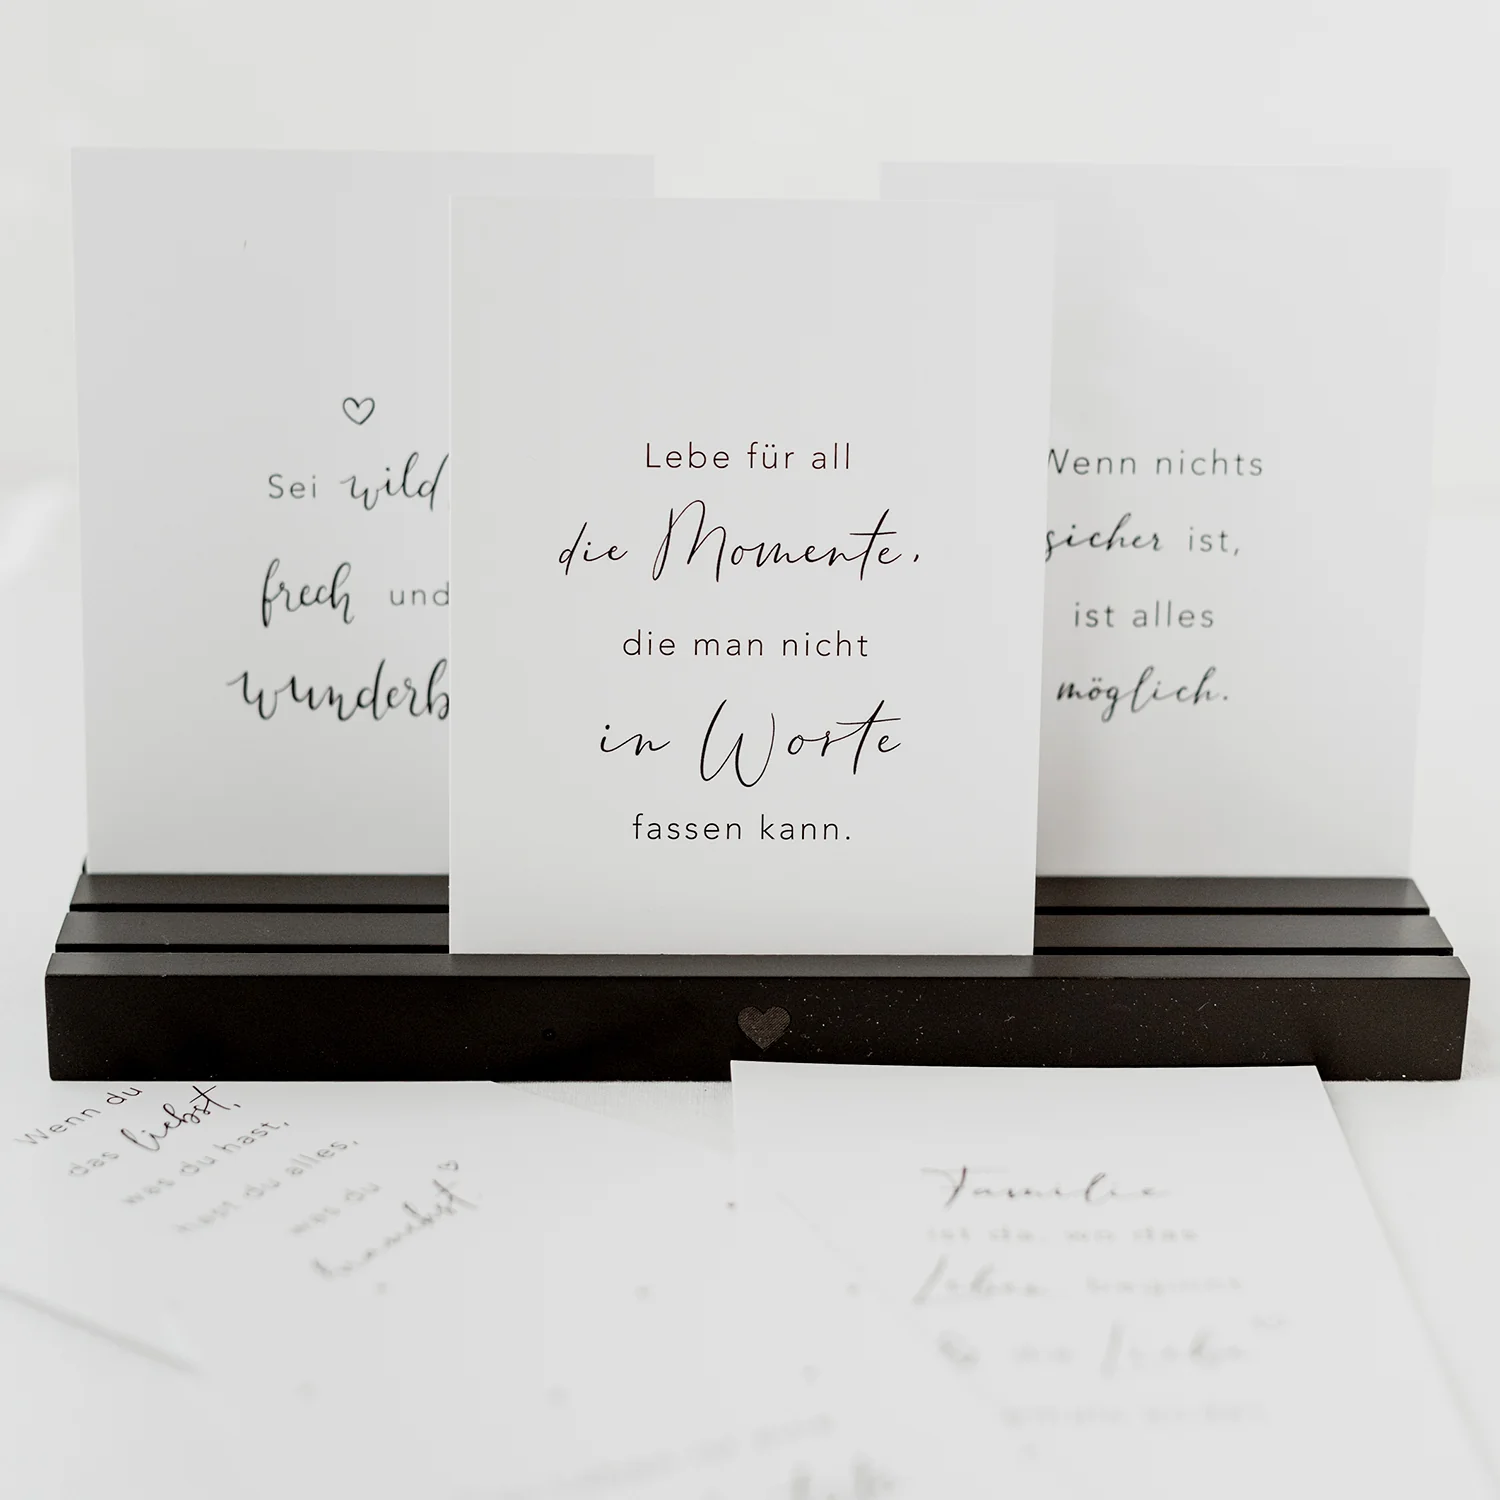 Sei wild,
frech und
wunderb
Lebe für all
die Momente,
die man nicht
in Worte
fassen kann.
Wenn nichts
sicher ist,
ist alles
möglich.
Wenn du
das liebst,
was du hast,
hast du alles,
was du
brauchst.
Familie
ist da, wo das
Leben